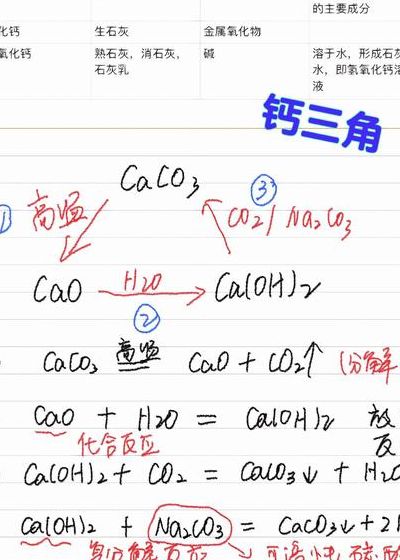 的主要成分
化钙 生石灰 金属氧化物
氧化钙 熟石灰，消石灰， 碱 溶于水，形成石灰
石灰乳 水，即氢氧化钙溶
液
钙三角
CaCO3
① 高温 ③ CO2/Na2CO3
CaO H2O Ca(OH)2
②
CaCO3 高温 CaO + CO2↑ (分解
CaO + H2O = Ca(OH)2 放
化合反应 反
Ca(OH)2 + CO2 = CaCO3↓ + H2O
Ca(OH)2 + Na2CO3 = CaCO3↓ + 2
复分解反应 可溶性碳酸